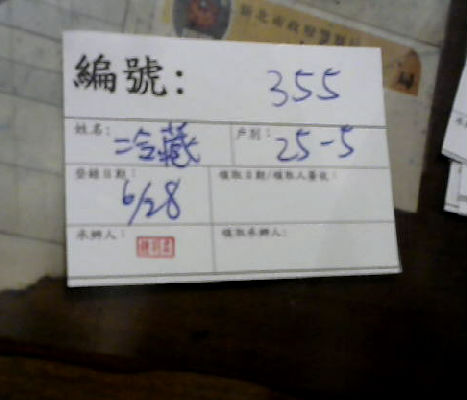 新北市政府警察局
編號: 355
姓名: 冷藏 戶別: 25-5
登錄日期: 領取日期/領取人簽收:
6/28
承辦人: 領取承辦人: